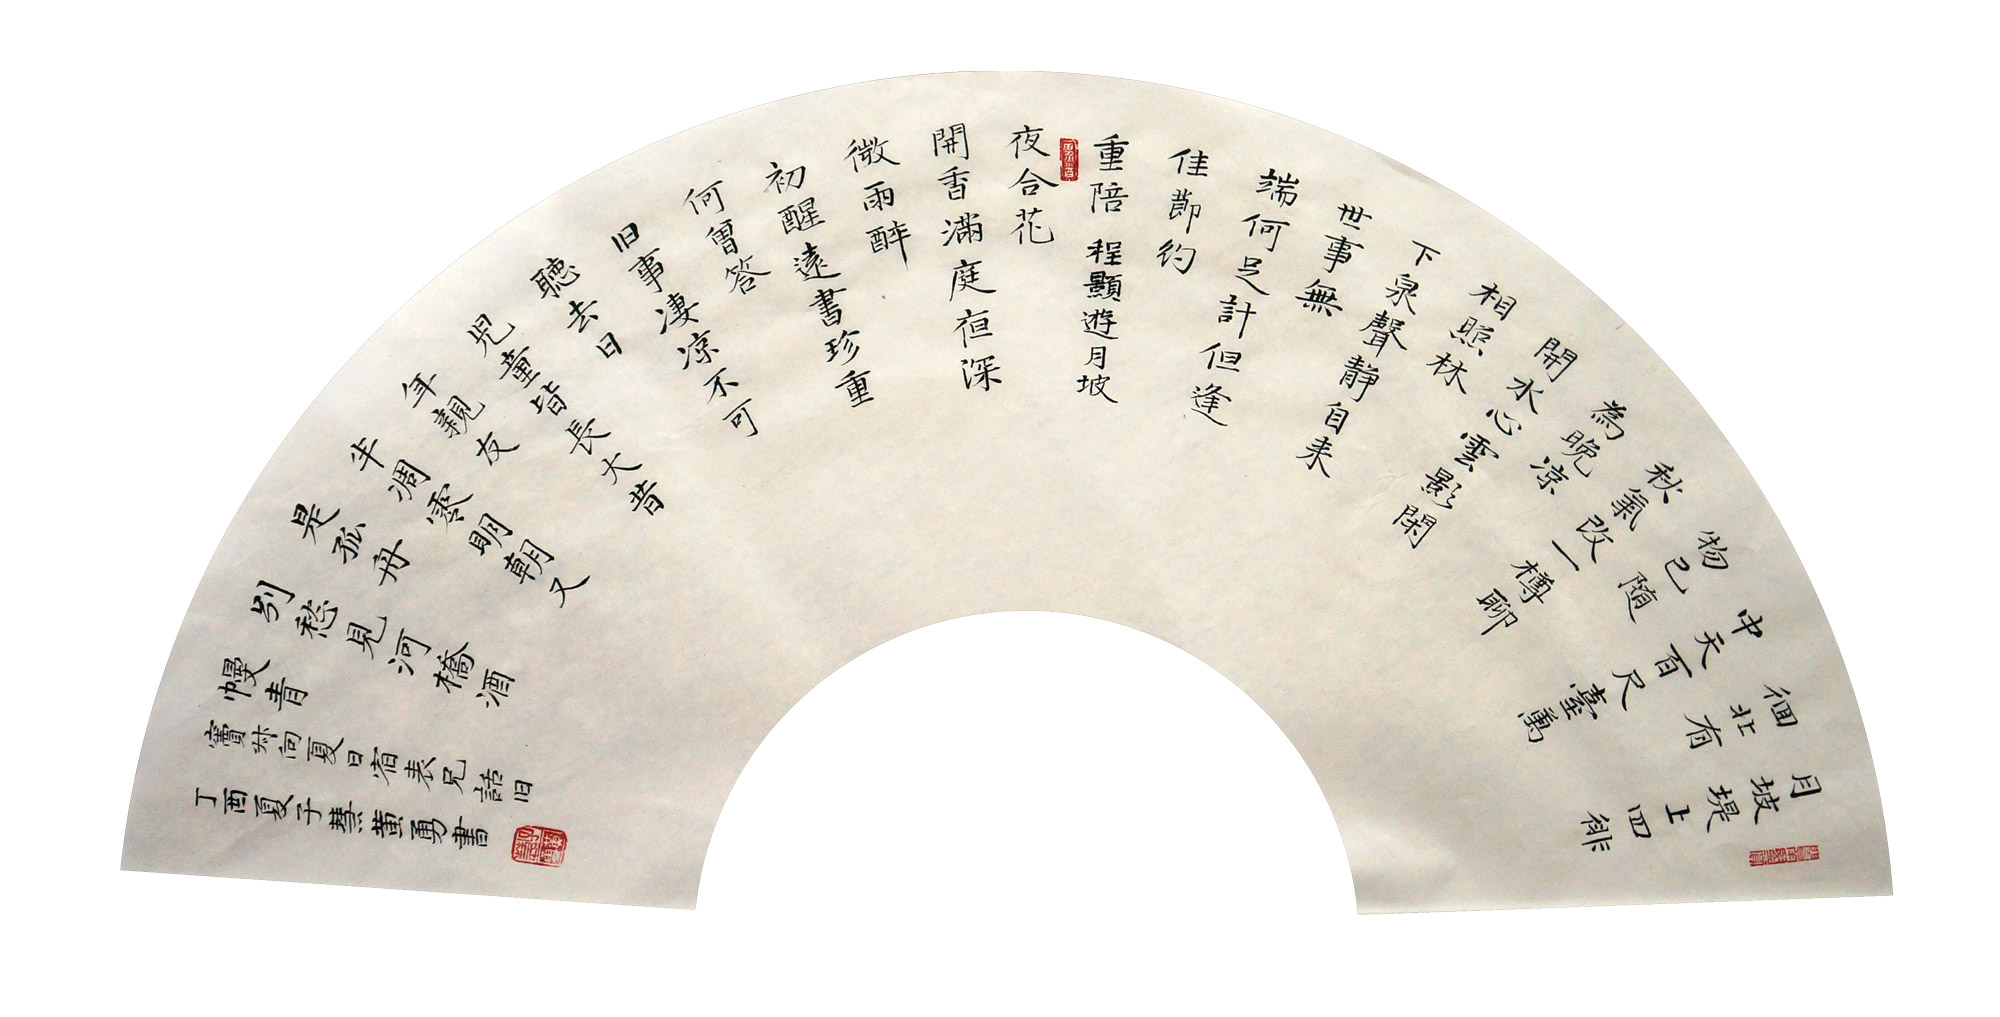 月坡堤上四徘
徊北有
中天百尺臺萬
物已随
秋氣改一樽聊
為晚凉
開水心雲影閑
相照林
下泉聲靜自来
世事無
端何足計但逢
佳節約
重陪 程顯遊月坡
夜合花
開香滿庭夜深
微雨醉
初醒遠書珍重
何曾答
旧事凄凉不可
聽去日
児童皆長大昔
年親友
半凋零明朝又
是孤舟
别愁見河橋酒
幔青 竇叔向夏日宿表兄話旧
丁酉夏子慧黄勇書